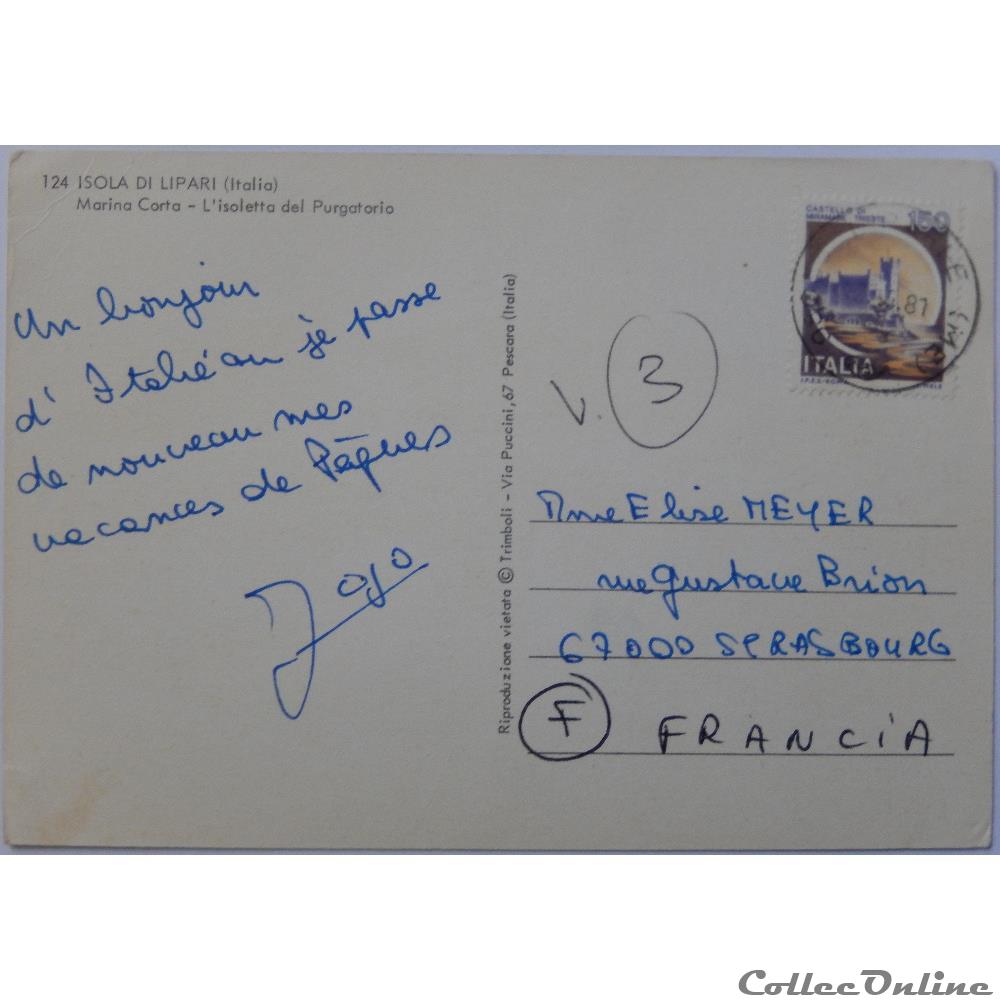 124 ISOLA DI LIPARI (Italia)
Marina Corta - L'isoletta del Purgatorio
Un bonjour
d'Italie où je passe
de nouveau mes
vacances de Pâques
Jojo
Riproduzione vietata © Trimboli - Via Puccini, 67 Pescara (Italia)
CASTELLO DI
MIRAMARE TRIESTE
150
ITALIA
87
V. 3
Mme Elise MEYER
rue Gustave Brion
67000 STRASBOURG
F FRANCIA
CollecOnline